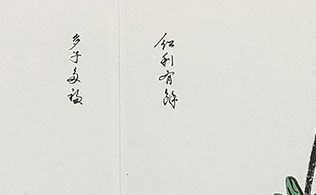 红利有餘
多子多福